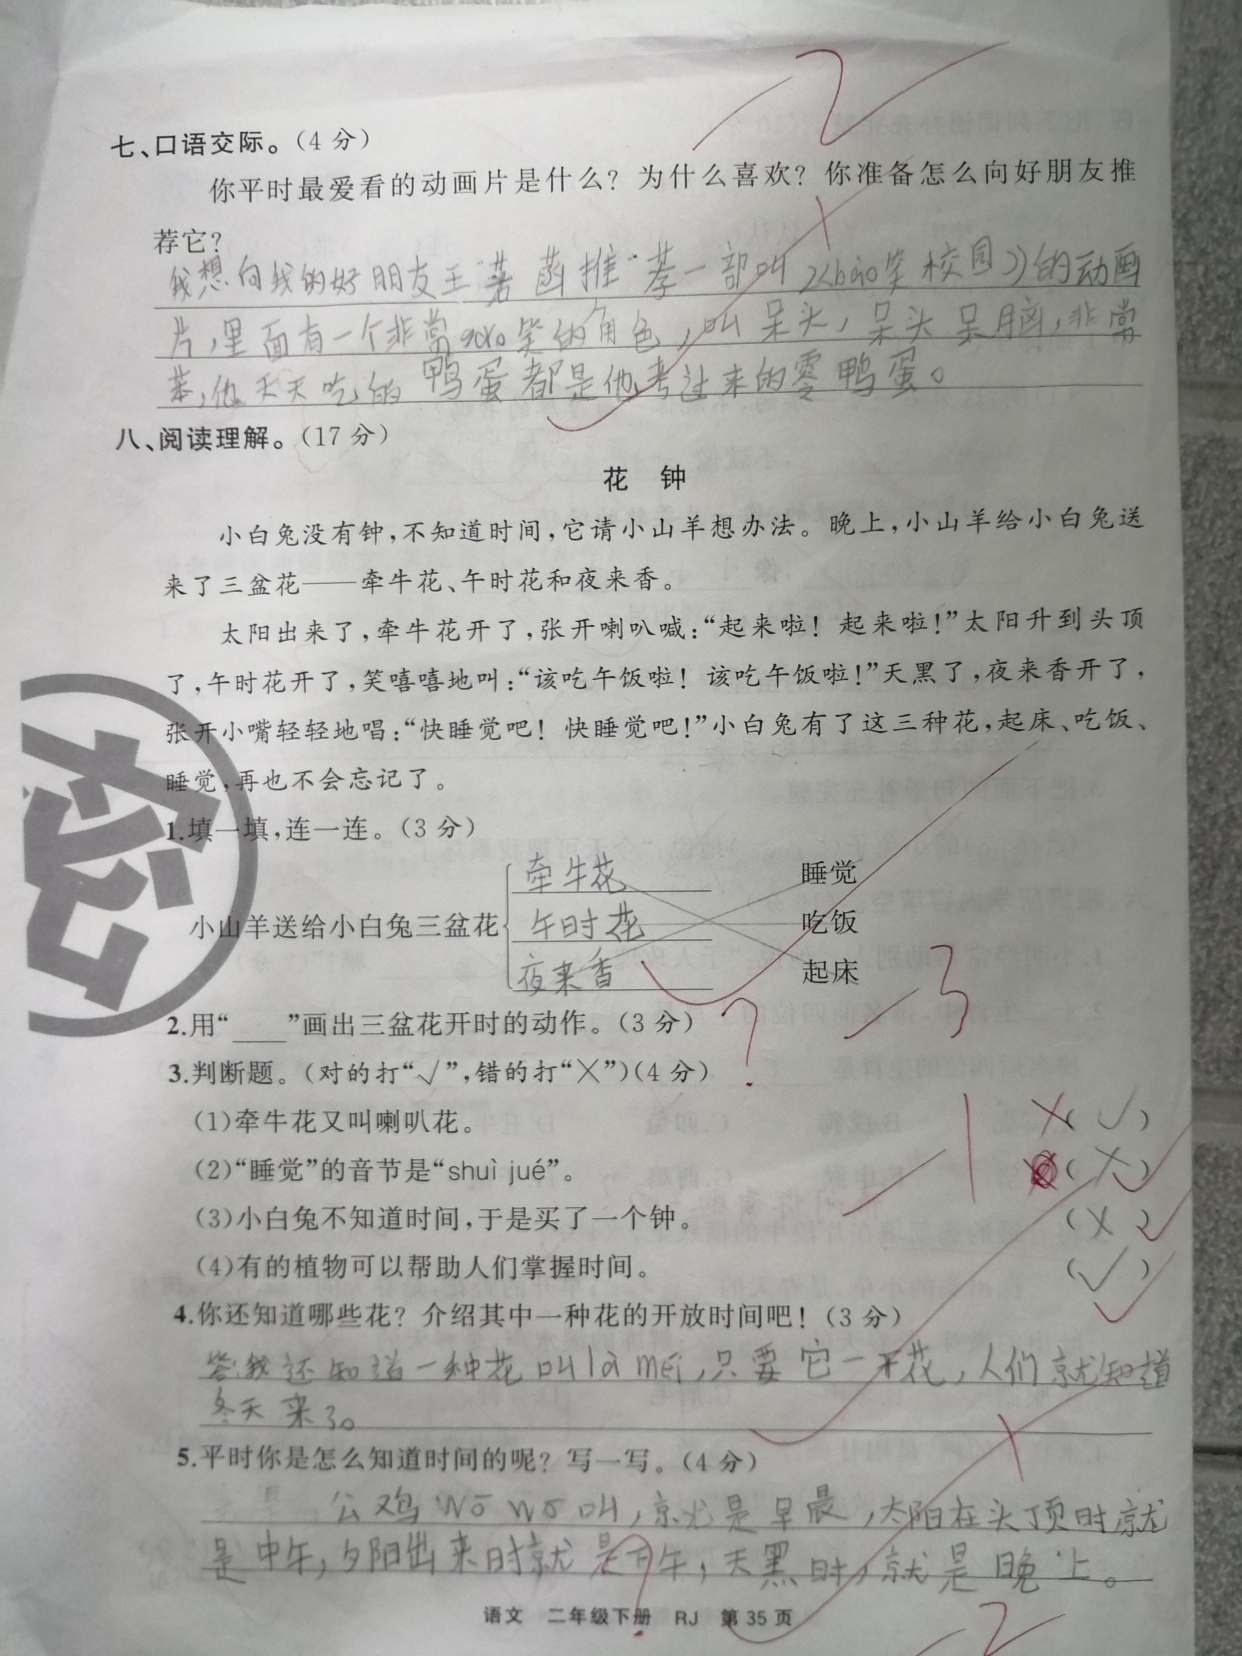 七、口语交际。(4分)
你平时最爱看的动画片是什么？为什么喜欢？你准备怎么向好朋友推
荐它？
我想向我的好朋友王 菡推荐一部叫《bào笑校园》的动画
片，里面有一个非常gǎo笑的角色，叫呆头，呆头呆脑，非常
笨，他天天吃的鸭蛋都是他考过来的零鸭蛋。
八、阅读理解。(17分)
花 钟
小白兔没有钟，不知道时间，它请小山羊想办法。晚上，小山羊给小白兔送
来了三盆花——牵牛花、午时花和夜来香。
太阳出来了，牵牛花开了，张开喇叭喊：“起来啦！起来啦！”太阳升到头顶
了，午时花开了，笑嘻嘻地叫：“该吃午饭啦！该吃午饭啦！”天黑了，夜来香开了，
张开小嘴轻轻地唱：“快睡觉吧！快睡觉吧！”小白兔有了这三种花，起床、吃饭、
睡觉，再也不会忘记了。
1.填一填，连一连。(3分)
牵牛花 睡觉
小山羊送给小白兔三盆花 午时花 吃饭
夜来香 起床
2.用“____”画出三盆花开时的动作。(3分)
3.判断题。(对的打“√”，错的打“×”)(4分)
(1)牵牛花又叫喇叭花。 (√)
(2)“睡觉”的音节是“shuì jué”。 (×)
(3)小白兔不知道时间，于是买了一个钟。 (×)
(4)有的植物可以帮助人们掌握时间。 (√)
4.你还知道哪些花？介绍其中一种花的开放时间吧！(3分)
答我还知道一种花叫là méi，只要它一开花，人们就知道
冬天来了。
5.平时你是怎么知道时间的呢？写一写。(4分)
公鸡wō wō叫，就是早晨，太阳在头顶时就
是中午，夕阳出来时就是下午，天黑时，就是晚上。
语文 二年级下册 RJ 第35页